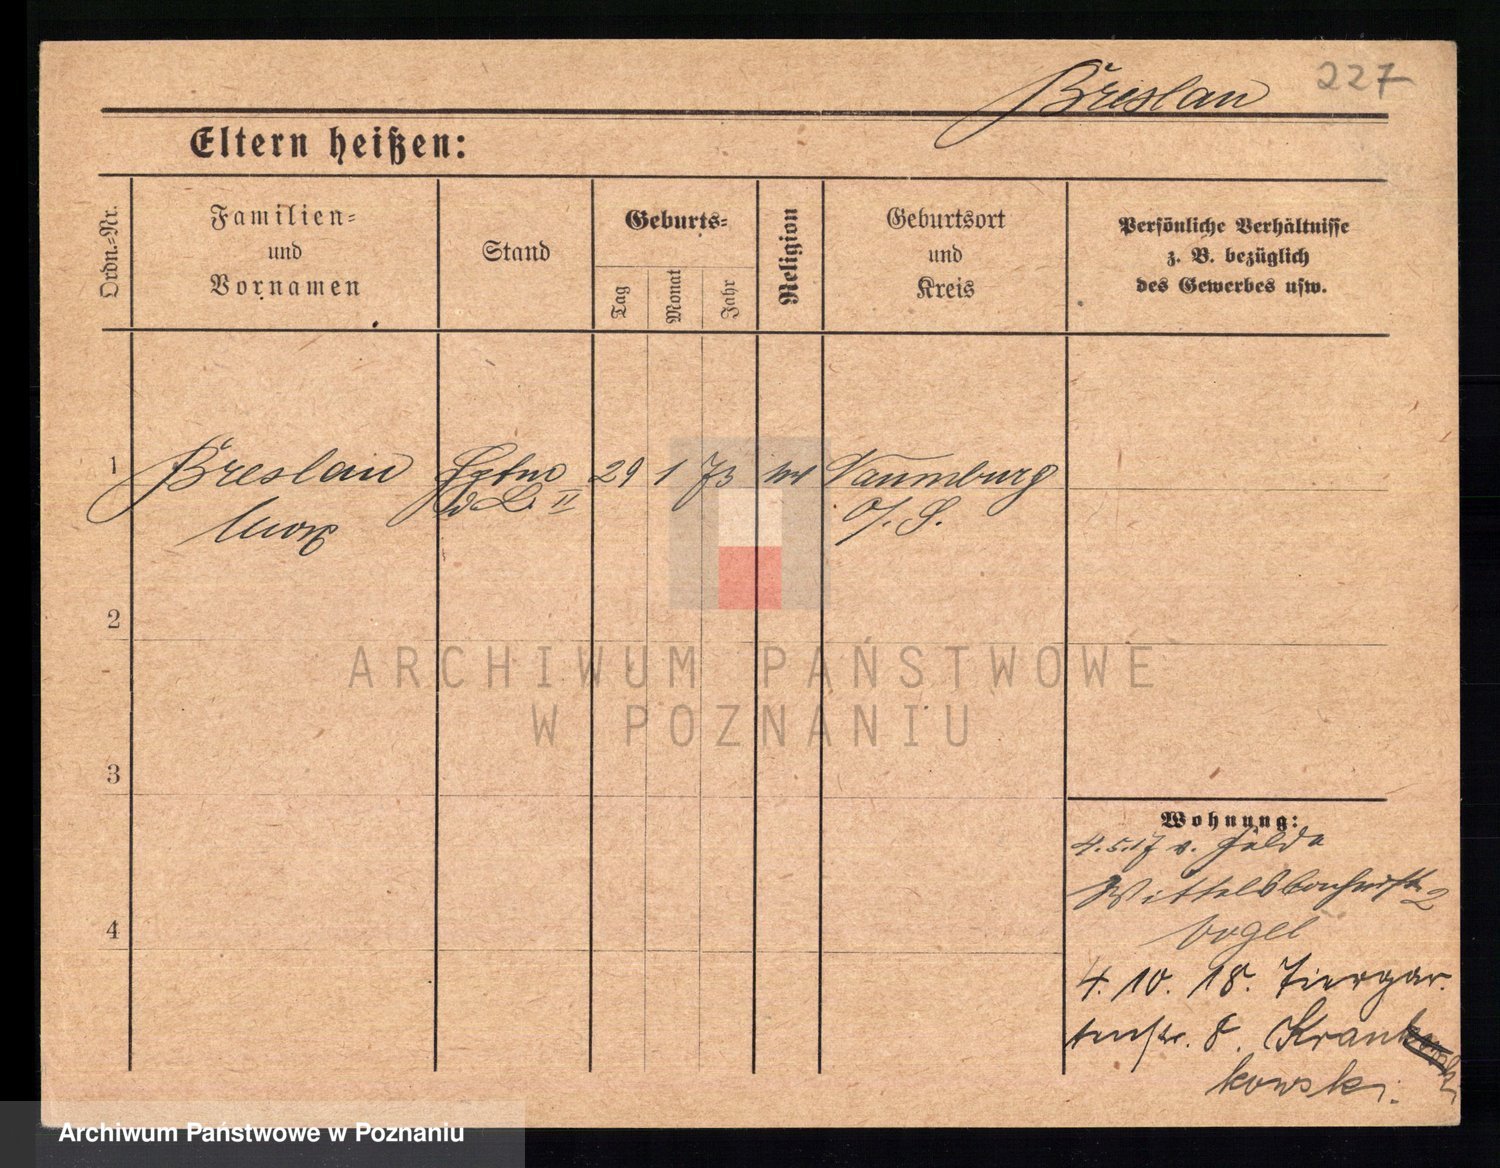 Breslau 227
Eltern heißen:
Ordn.-Nr.
Familien-
und
Vornamen
Stand
Geburts-
Tag
Monat
Jahr
Religion
Geburtsort
und
Kreis
Persönliche Verhältnisse
z. B. bezüglich
des Gewerbes usw.
1 Breslau 29 1 73 Naumburg
Max d. L. II
2
3
4
ARCHIWUM PAŃSTWOWE
W POZNANIU
Wohnung:
4.5.17 v.
2
Vogel
4. 10. 18. Tiergar.
tenstr. 8.
kowski.
Archiwum Państwowe w Poznaniu